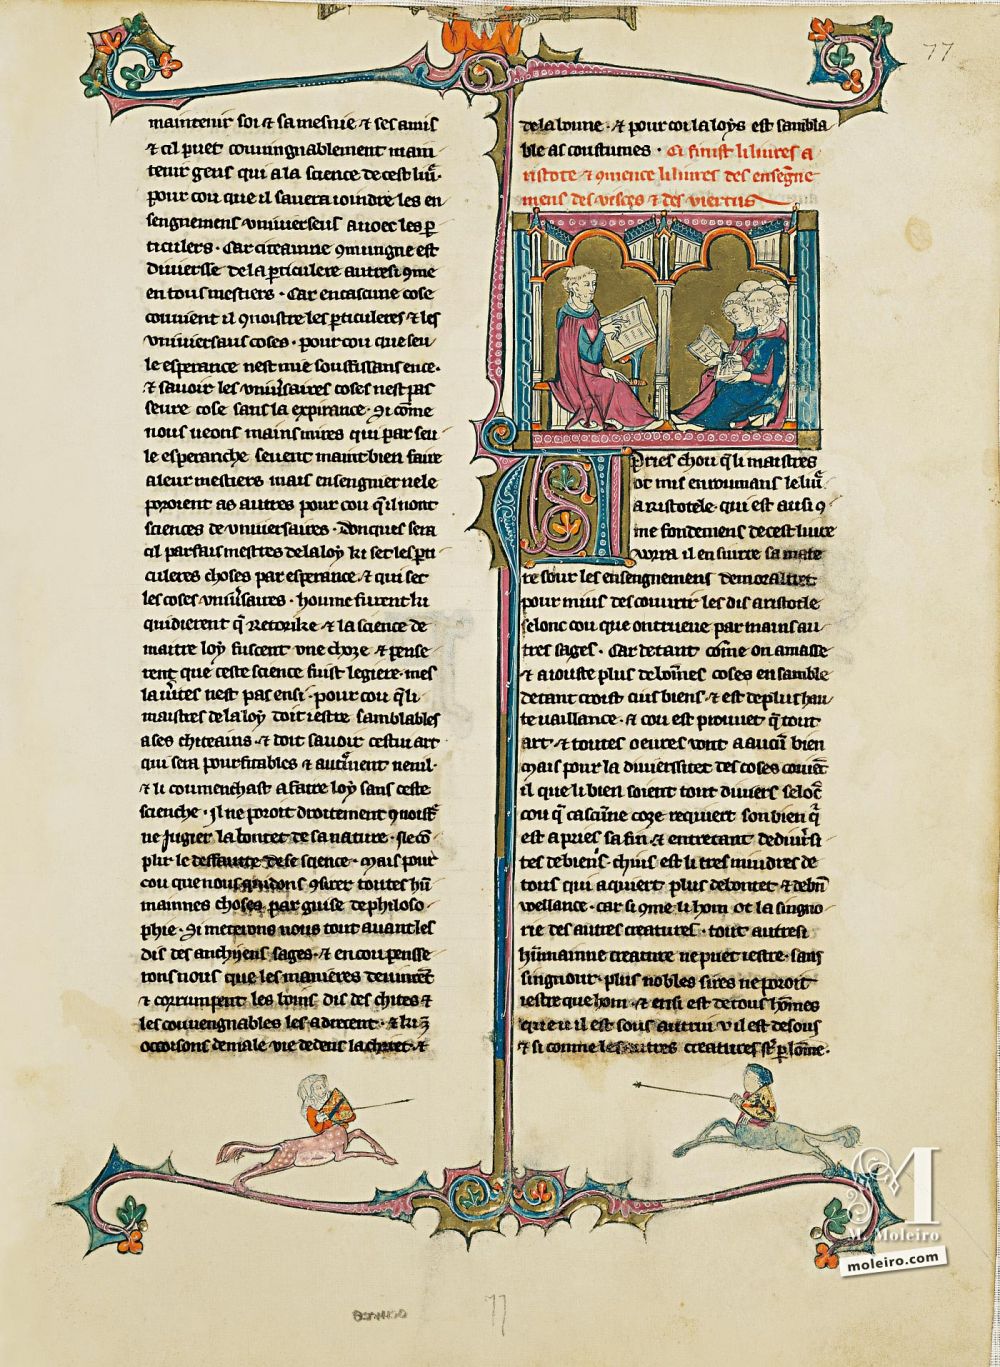 77
maintenir soi & sa mesnie & ses amis
& cil puet couuingnablement main
tenir gens qui a la science de cest liu͞
pour cou que il sauera ioindre les en
segnemens vniuerseus auoec les p
ticulers · Car
diuersse de la pticulere autresi 9me
en tous mestiers · Car en cascune cose
couuient il 9noistre les pticuleres & les
vniuersaus coses · pour cou que seu
le esperance nest mie souffissans en ce ·
& sauoir les coses nest pas
seure cose sans la expirance · Si com̄e
nous ueons mains mires qui par seu
le esperanche seuent maint bien faire
a leur mestiers mais ensengnier ne le
poroient as autres pour cou q̄ il nont
sciences de vniuersaires · Donques sera
cil parfais mestres de la loy ki set les pti
culeres choses par esperance · & qui set
les coses · houme furent ki
quidierent q̄ Retorike & la science de
maitre loy fuscent vne choze & pense
rent que ceste science fuist legiere · mes
la nest pas ensi · pour cou q̄ li
maistres de la loy doit iestre samblables
a ses & doit sauoir cestui art
qui sera pourfitables & nenil ·
& li coumenchast a faire loy sans ceste
scienche · il ne poroit droitement
ne jugier la bontet de sa nature ·
plir le deffaute de se science · mais pour
cou que nous quidons toutes hū
mainnes choses par guise de philoso
phie · Si meterons nous tout auant les
dis des anchijens sages · & en cou pensse
rons nous que les manieres
& corrumpent les boins dis des chites &
les couuengnables les adrecent · & ki
occoisons de male vie dedens la chitet · &
de la bonne · & pour coi la loys est sambla
ble as coustumes · Ci finist li liures a
ristote & 9mence li liures des ensegne
mens des visces & des viertus
Apries chou q̄ li maistres
ot mis en roumans le liu͞
aristotele · qui est ausi 9
me fondemens de cest liure
vora il ensuirre sa mate
re sour les ensengnemens de moralitet
pour mius descouurir les dis aristotle
selonc cou que on trueue par mains au
tres sages · Car de tant com̄e on amasse
& aiouste plus de boin̄es coses ensamble
de tant croist cius biens · & est de plus hau
te vaillance · & cou est prouuet q̄ tout
art · & toutes oeures vont a aucū bien
mais pour la diuerssitet des coses
il que li bien soient tout diuers
cou q̄ cascūne coze requiert son bien
est apries sa fin & entre tant de
tes de biens · chius est li tres miudres de
tous qui aquiert plus de bontet &
vuellance · car si 9me li hom ot la singno
rie des autres creatures · tout autresi
hūmainne creature ne puet iestre · sans
singnour · plus nobles sires ne poroit
iestre que hom · & ensi est de tous hōmes
que u il est sous autrui v il est desous
& si comme les autres creatures
77
M. Moleiro
moleiro.com